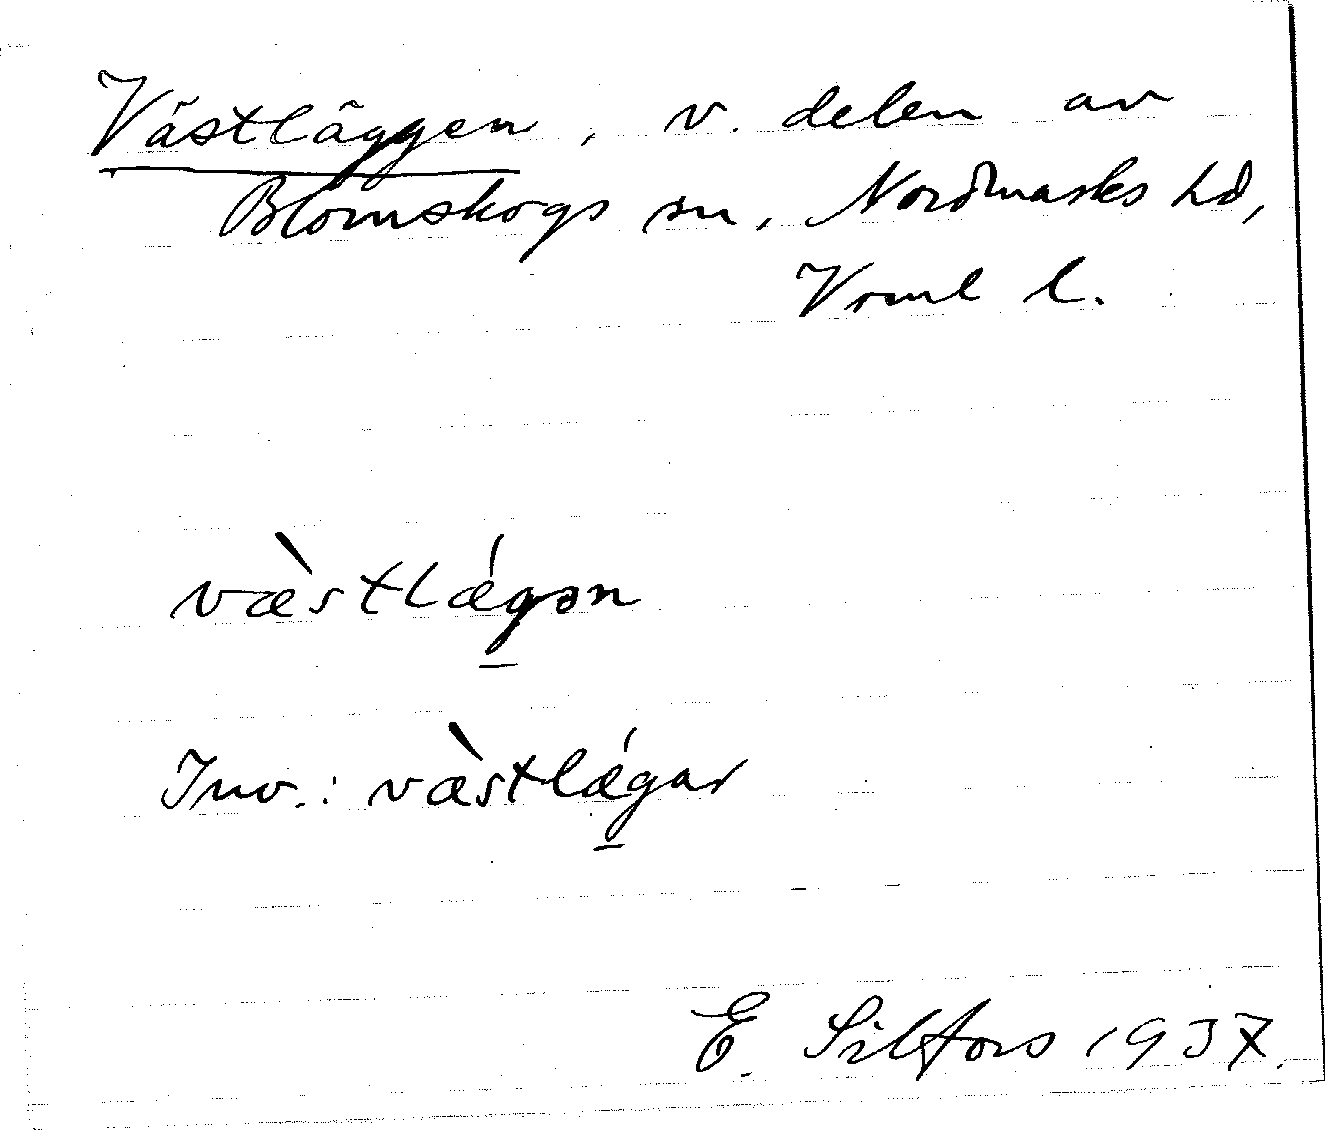 Västläggen, v. delen av
Blomskogs sn, Nordmarks hd,
Vrml l.
væ̀stlǽg̱ən
Inv.: væ̀stlǽg̱ar
E. Silfors 1937.